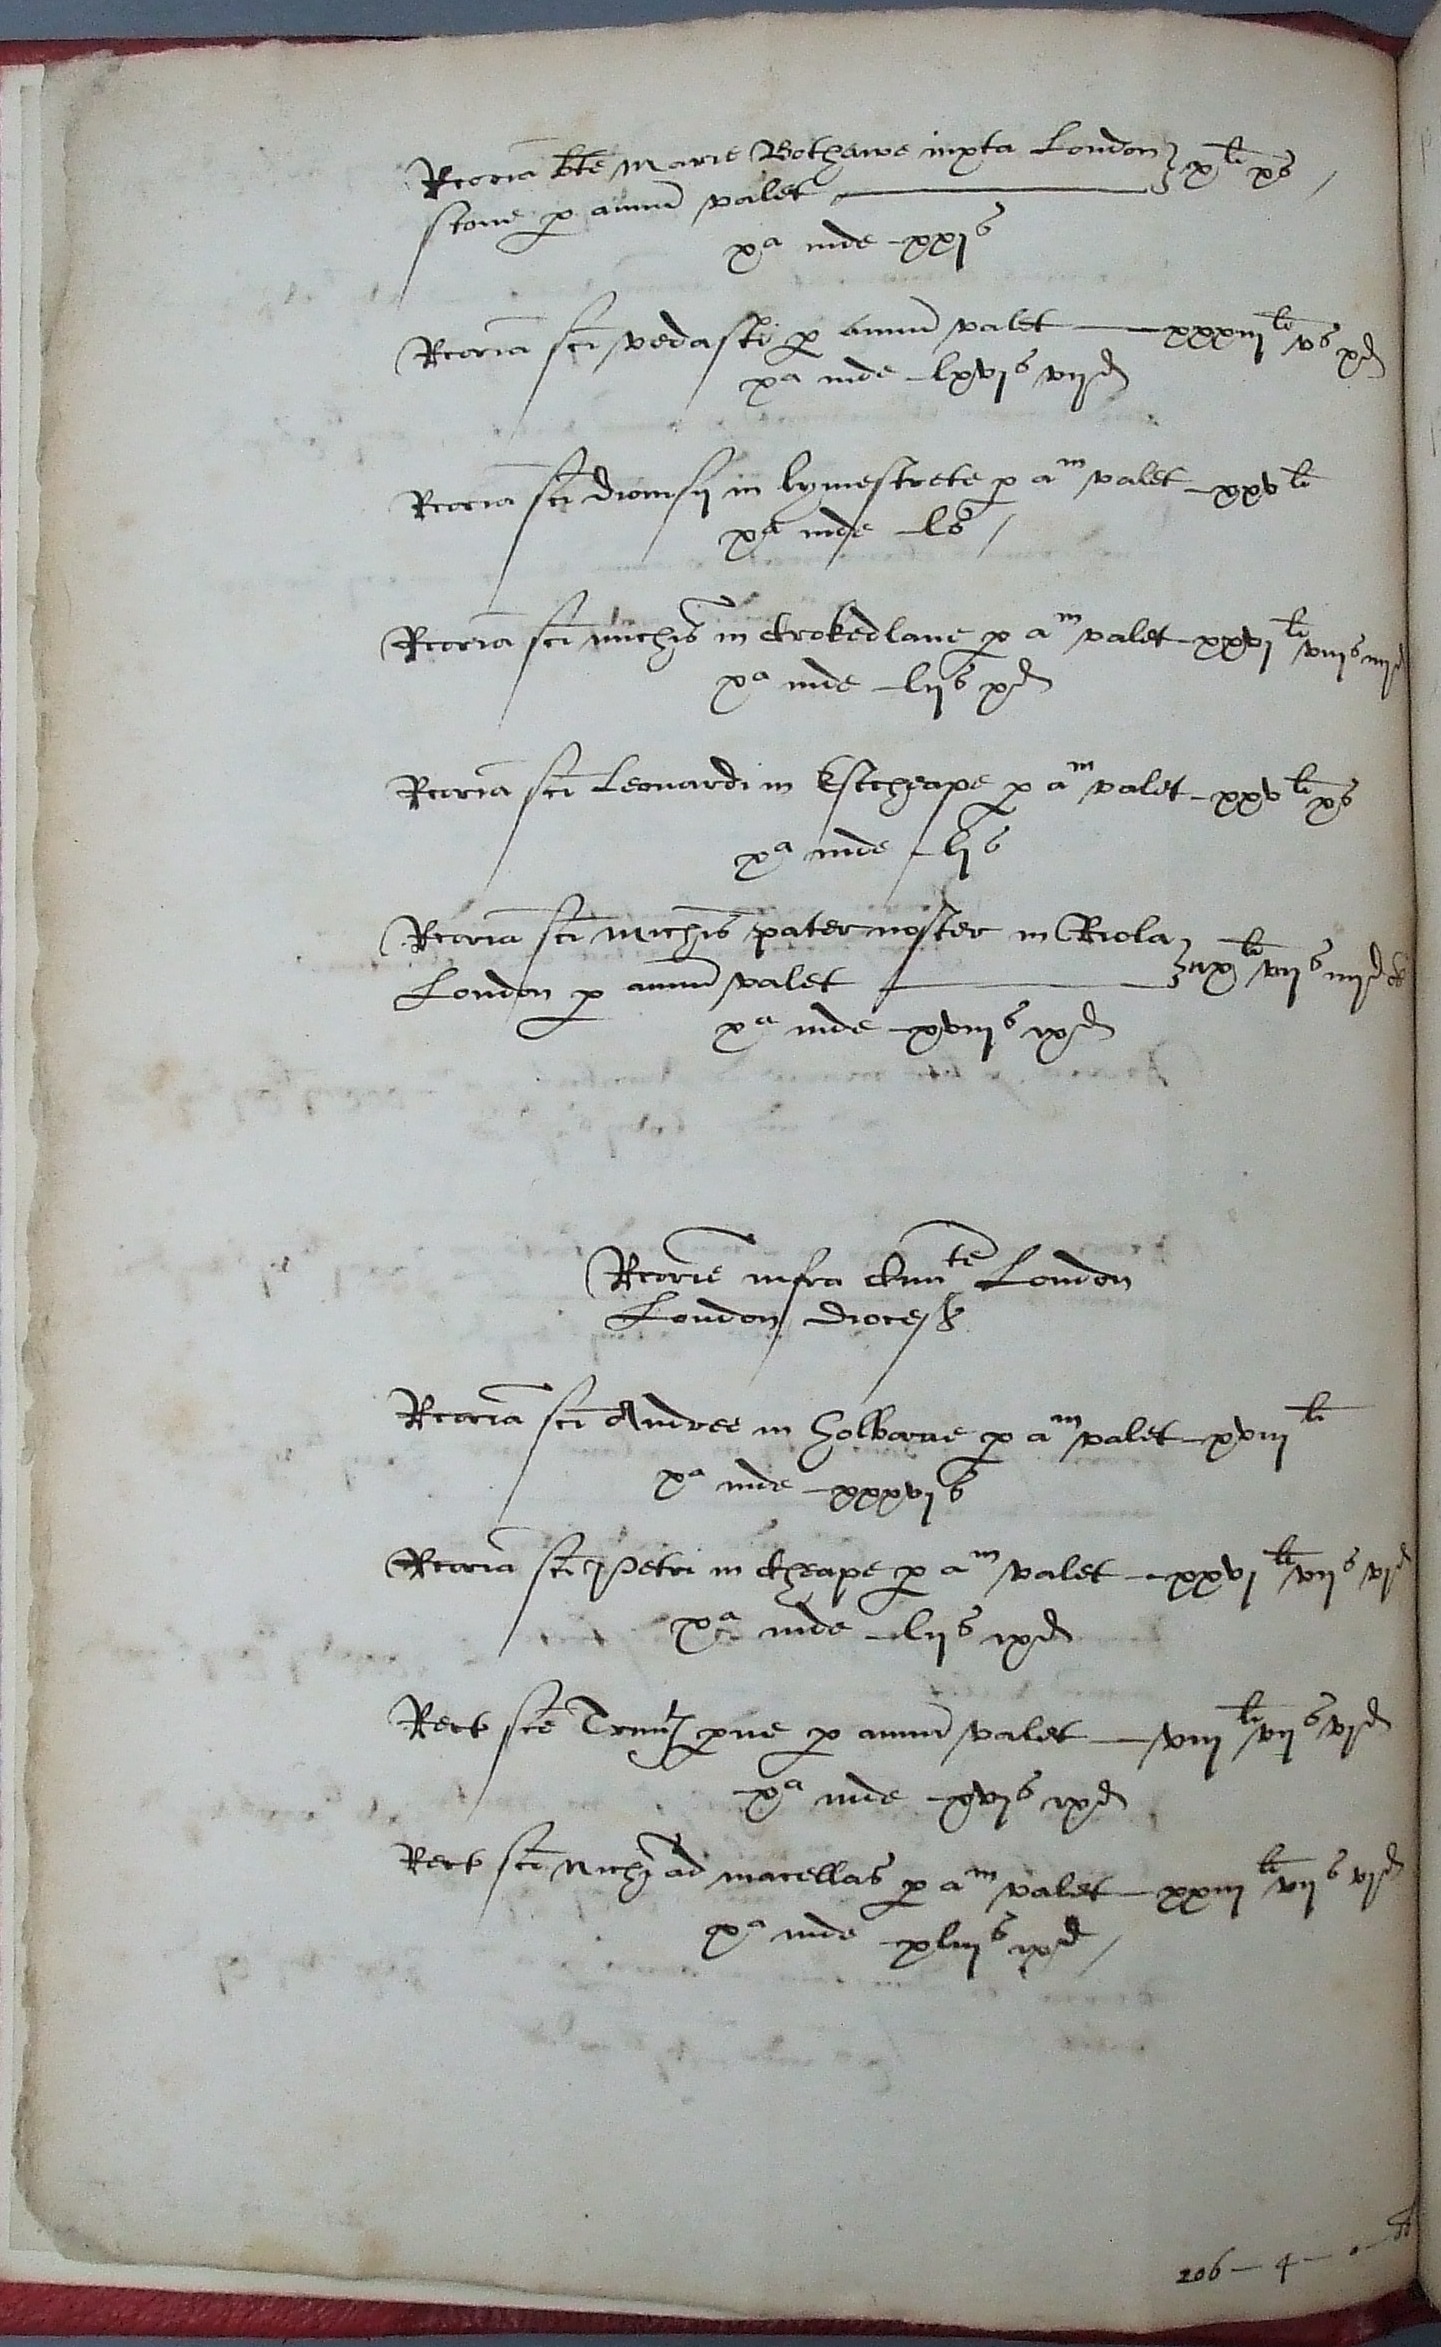 Rcoria bte Marie Bothawe iuxta London
stone p annu valet — x li xs
xa inde xxjs
Rcoria sci vedasti p annu valet — xxxiij li vs xd
xa inde lxvjs vijd
Rcoria sci dionisij in lymestrete p am valet xxv li
xa inde ls
Rcoria sci michis in Crokedlane p am valet xxvj li viijs iiijd
xa inde lijs xd
Rcoria sci Leonardi in Estcheape p am valet xxv li xs
xa inde ljs
Rcoria sci Michis pater noster in Riola
London p annu valet — ix li vijs iiijd ob
xa inde xviijs ixd
Rcorie infra Cuite London
London dioces
Rcoria sci Andree in Holborne p am valet xviij li
xa inde xxxvjs
Rcoria sci Petri in Cheape p am valet xxvj li vijs vjd
xa inde lijs ixd
Rect sce Trinit pue p annu valet — viij li vijs vjd
xa inde xvjs ixd
Rect sci Nichi ad macellas p am valet xxiij li vijs vjd
xa inde xlvjs ixd
206 — 4 — 0 — ob